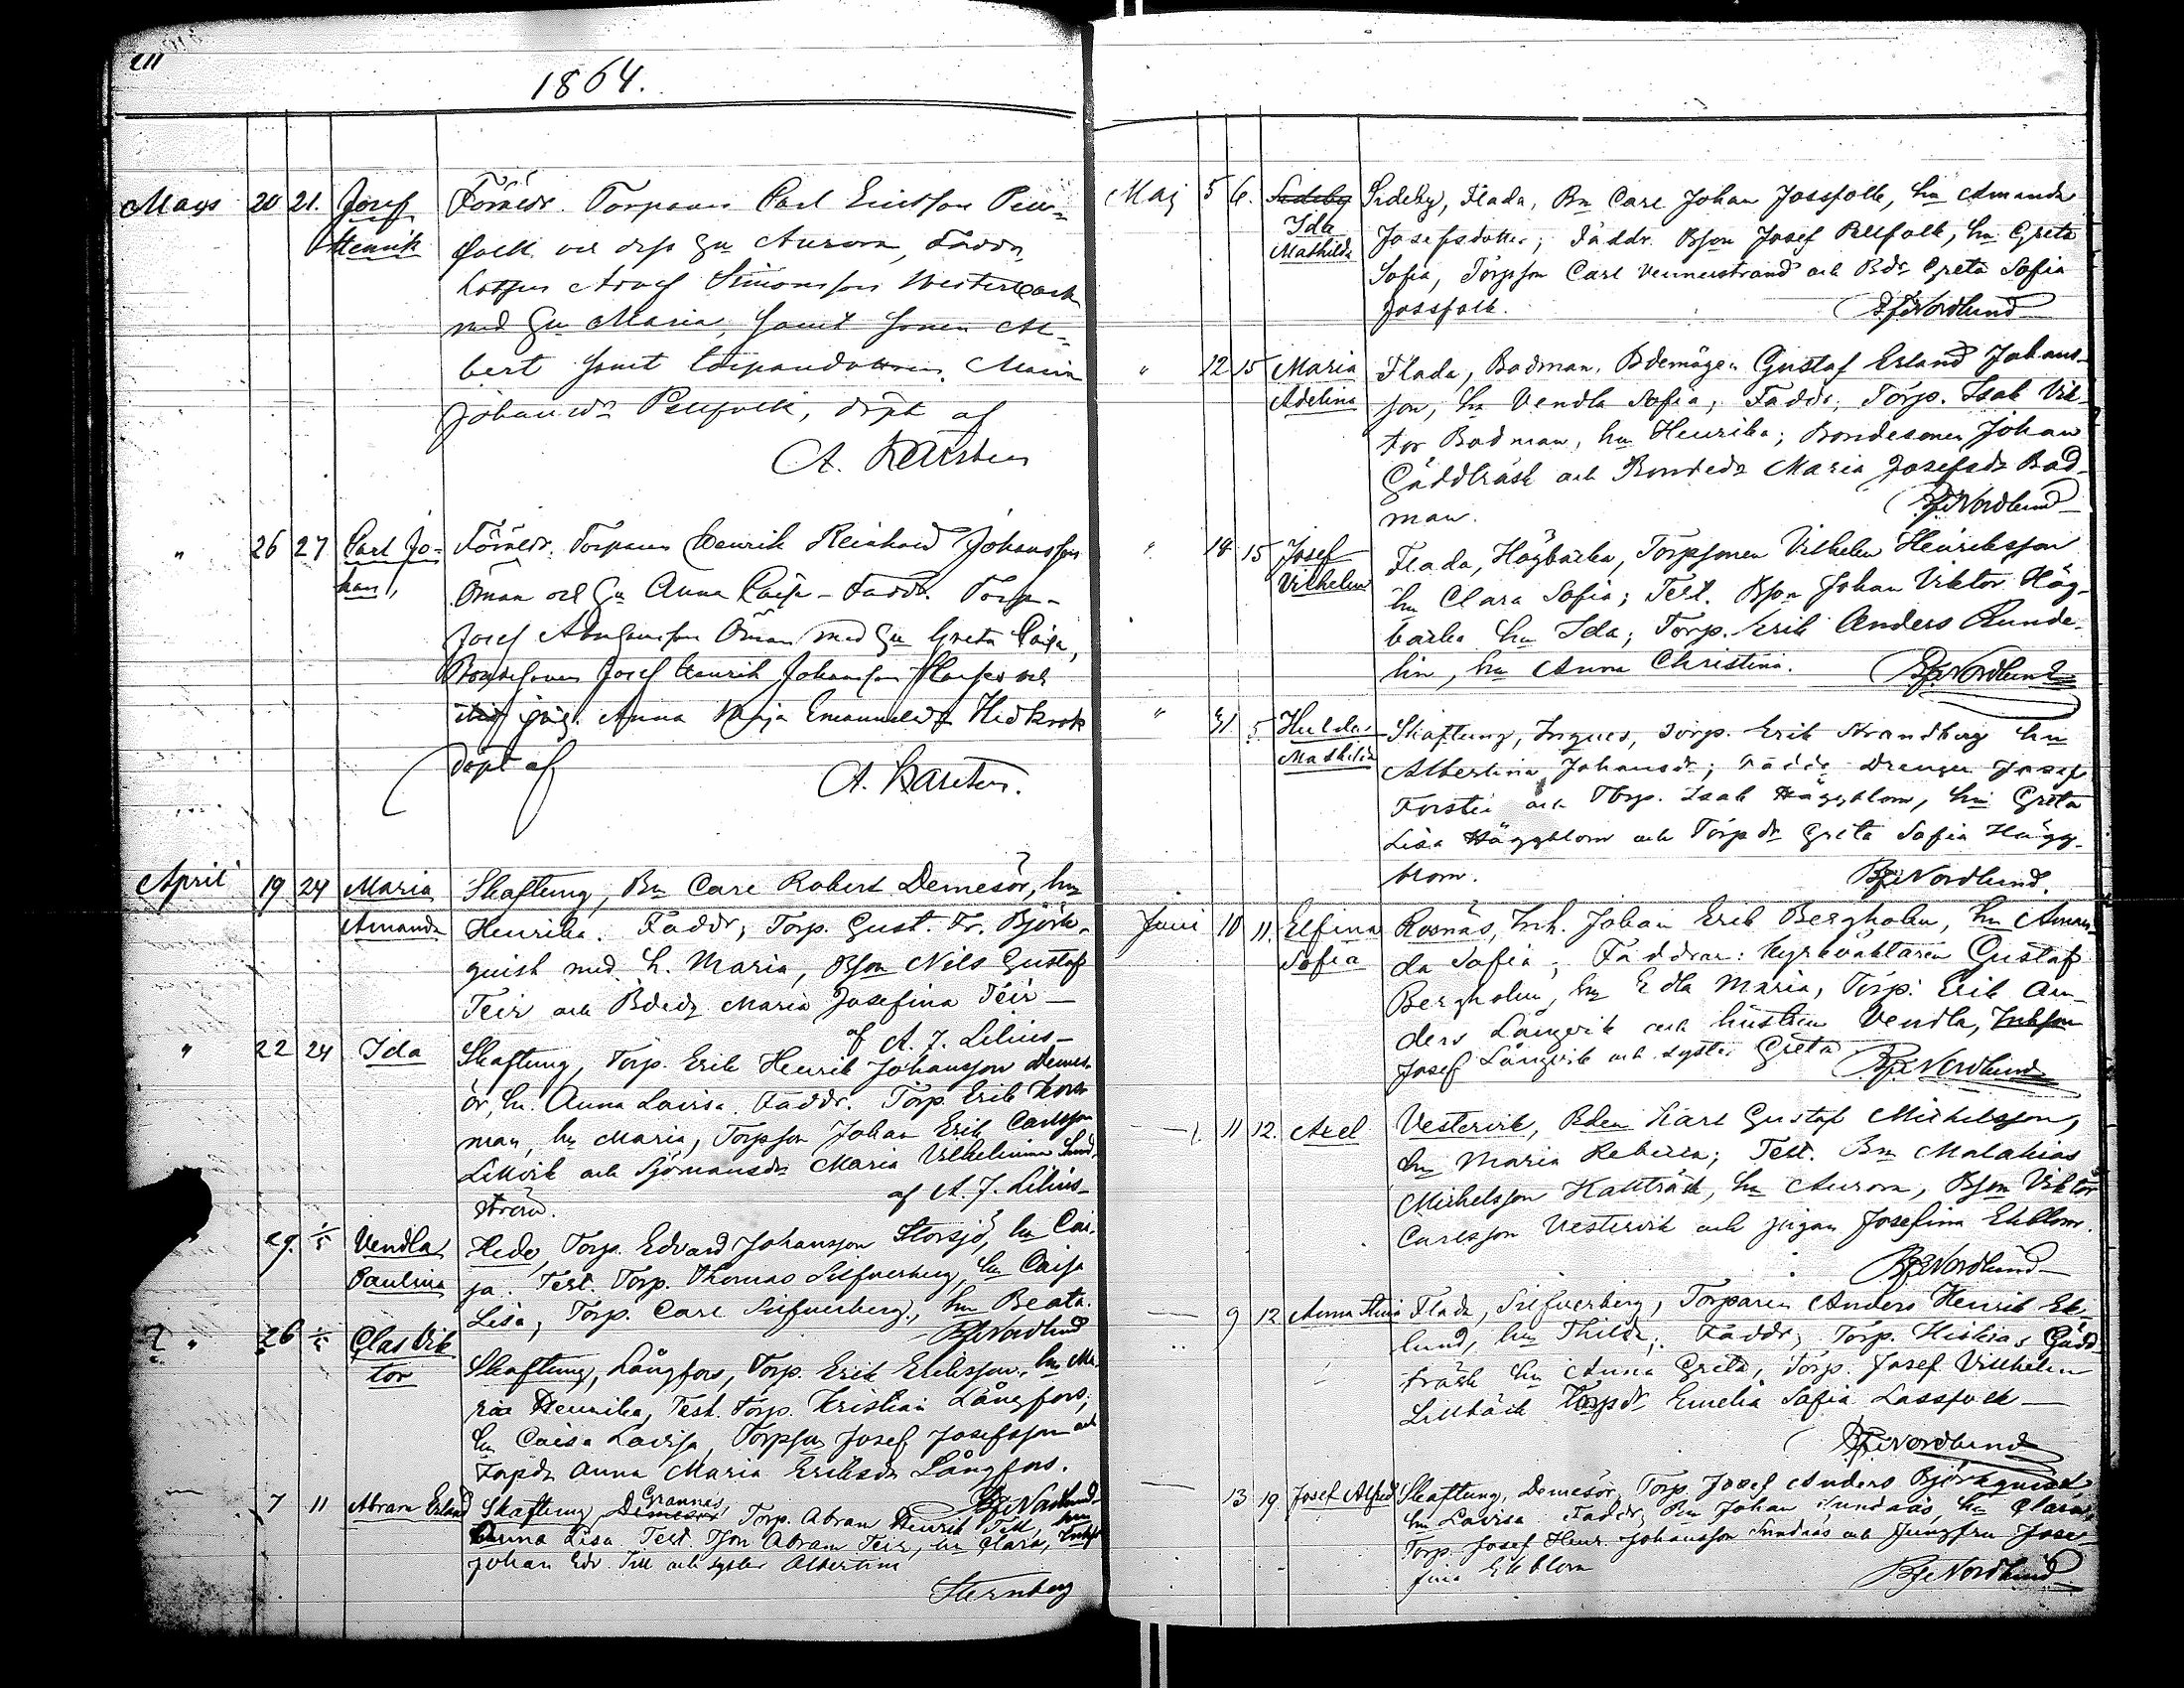 1864.
Mars 20 21. Josef Föräldr. Torparen Carl Ericsson Pell-
Henrik folk och dess hu Aurora, Faddr,
Adolf Simonsson Westerback
med hu Maria, samt sonen Al-
bert samt torparedottren Maria
Johansdr Pellfolk, döpt af
A. Karsten
" 26 27 Carl Jo- Föräldr. Torparen Henrik Reinhard Johansson
han, Öman och hu Anna Caisa - Faddr. Torp.
Josef Abrahamsson Öman med hu Greta Caisa,
Bondesonen Josef Henrik Johansson och
pig. Anna Maja Emanuelsdr Hedkrok
döpt af
A. Karsten.
April 19 24 Maria Skaftung, Bn Carl Robert Demesör, hn
Amanda Henrika. Faddr, Torp. Gust. Fr. Björk-
quist med h. Maria, Bson Nils Gustaf
Teir och Bdedr Maria Josefina Teir —
af A. J. Lilius —
" 22 24 Ida Skaftung, Torp. Erik Henrik Johansson Demes-
ör, hn. Anna Lovisa. Faddr. Torp Erik Kors-
man, hn Maria, Torpson Johan Erik Carlsson
Lillvik och Sjömansdr Maria Vilhelmina Sund-
ström. af A. J. Lilius —
29. 1/5 Vendla Hede, Torp. Edvard Johansson Storsjö, hn Cai-
Paulina sa. Test. Torp. Thomas Silfverberg, hn Caisa
Lisa, Torp. Carl Silfverberg, hn Beata.
Nordlund
" 26 1/5 Clas Vik- Skaftung, Långfors, Torp. Erik Eriksson, hn Ma-
tor ria Henrika, Test. Torp. Kristian Långfors,
hn Caisa Lovisa, Torpson Josef Josefsson och
Torpdr Anna Maria Eriksdr Långfors.
Nordlund
— 7 11 Abram Erland Skaftung, Demesör Grannas, Torp. Abram Henrik Till, hn
Anna Lisa Test. Tson Abram Teir, hn Clara, Inhs
Johan Edv. Till och syster Albertina
Sternberg
Maj 5 6. Sideby Sideby, Flada, Bn Carl Johan Jossfolk, hn Amanda
Ida Josefsdotter; Faddr. Bson Josef Pellfolk, hn Greta
Mathilda Sofia, Torpson Carl Vennerstrand och Bdr Greta Sofia
Jossfolk. Nordlund
" 12 15 Maria Flada, Badman, Bdemågen Gustaf Erland Johans-
Adelina son, hn Vendla Sofia, Faddr, Torp. Isak Vik-
tor Badman, hn Henrika; Bondesonen Johan
Gäddträsk och Bondedr Maria Josefsdr Bad-
man. Nordlund
" 14 15 Josef Flada, Högbacka, Torpsonen Vilhelm Henriksson
Vilhelm hn Clara Sofia; Test. Bson Johan Viktor Hög-
backa hn Ida; Torp. Erik Anders Lunde-
lin, hn Anna Christina. Nordlund
" 31. 5 Hulda Skaftung, Ingves, Torp. Erik Strandberg hn
Mathilda Albertina Johansdr; Faddr Drengen Josef
och Torp. Isak Häggblom, hn Greta
Lisa Häggblom och Torpdr Greta Sofia Hägg-
blom. Nordlund.
Juni 10 11. Elfina Rosnäs, Inh. Johan Erik Bergholm, hn Aman-
Sofia da Sofia; Faddrar: Kyrkväktaren Gustaf
Bergholm, hn Edla Maria, Torp. Erik An-
ders Långvik och hustrun Vendla, Inhson
Josef Långvik och syster Greta Nordlund
— 11 12. Axel Vestervik, Bden Karl Gustaf Michelsson,
hn Maria Rebecca; Test. Bn Malakias
Michelsson Kallträsk, hn Aurora, Bson Viktor
Carlsson Vestervik och pigan Josefina Ekblom.
Nordlund
— 9 12 Anna Stina Flada, Silfverberg, Torparen Anders Henrik Ek-
lund, hn Thilda; Faddr, Torp. Hiskias Gädd-
träsk hn Anna Greta, Torp. Josef Vilhelm
Lillbäck Torpdr Emelia Sofia Lassfolk —
Nordlund
— 13 19 Josef Alfred Skaftung, Demesör, Torp. Josef Anders Björkquist
hn Lovisa Faddr, Bn Johan Sundnäs, hn Clara,
Torp. Josef Henr. Johansson Sundnäs och Jungfru Jose-
fina Ekblom
Nordlund